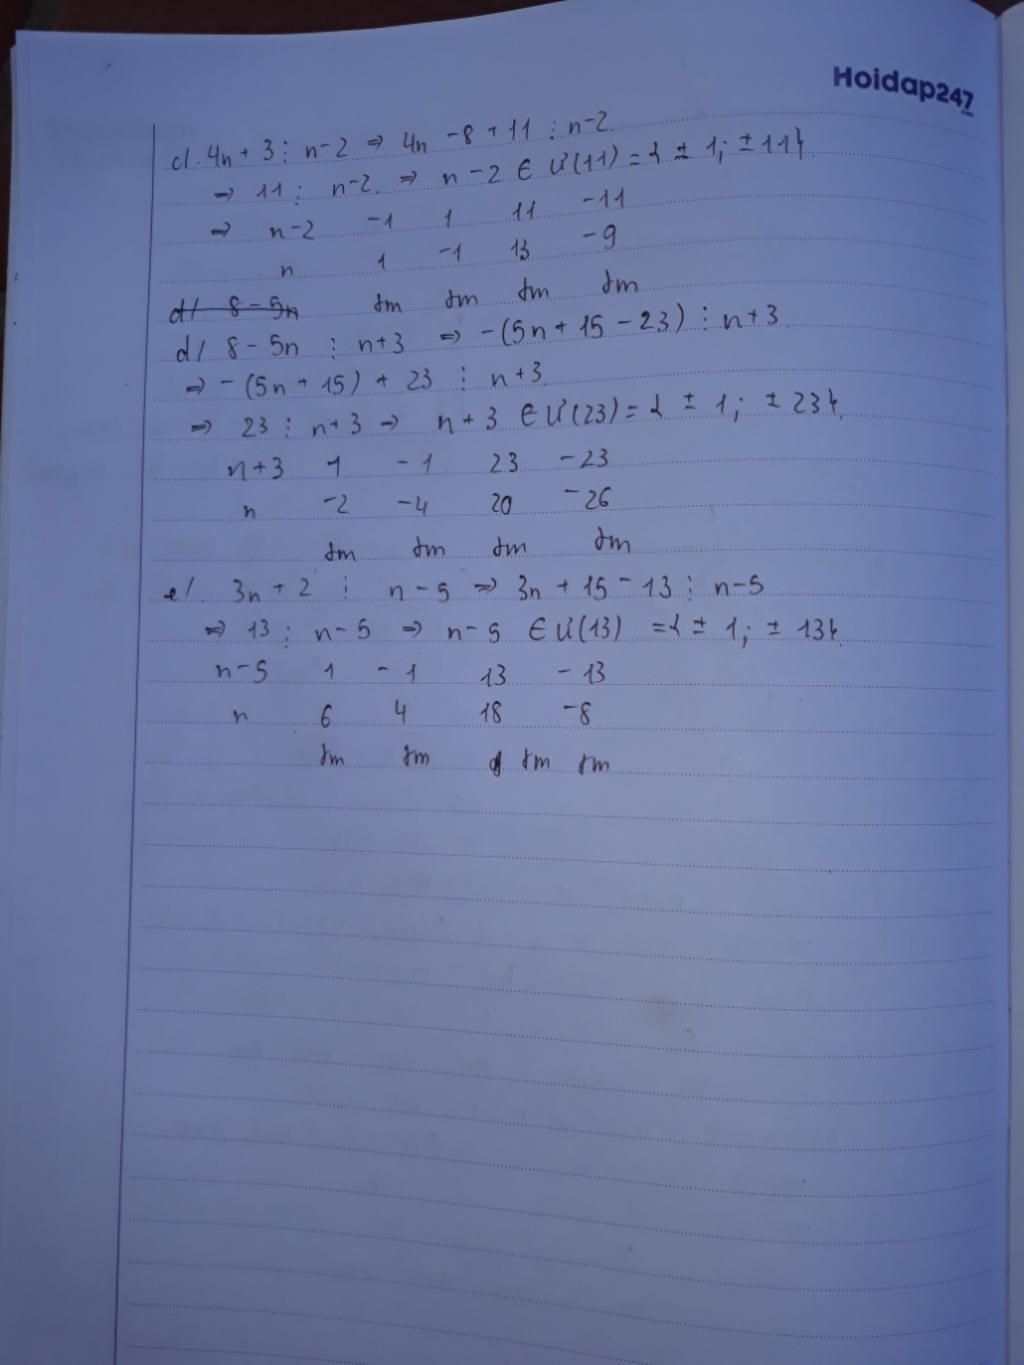 Hoidap247
.com
c/. 4n + 3 ⋮ n-2 ⇒ 4n -8 + 11 ⋮ n-2
⇒ 11 ⋮ n-2. ⇒ n-2 ∈ Ư(11) = { ± 1; ± 11}
⇒ n-2 -1 1 11 -11
n 1 -1 13 -9
tm tm tm tm
d/. 8 - 5n
d/ 8 - 5n ⋮ n+3 ⇒ -(5n + 15 - 23) ⋮ n+3
⇒ -(5n + 15) + 23 ⋮ n+3.
⇒ 23 ⋮ n+3 ⇒ n+3 ∈ Ư(23) = { ± 1; ± 23}.
n+3 1 -1 23 -23
n -2 -4 20 -26
tm tm tm tm
e/. 3n + 2 ⋮ n-5 ⇒ 3n + 15 - 13 ⋮ n-5
⇒ 13 ⋮ n-5 ⇒ n-5 ∈ Ư(13) = { ± 1; ± 13}.
n-5 1 -1 13 -13
n 6 4 18 -8
tm tm tm tm